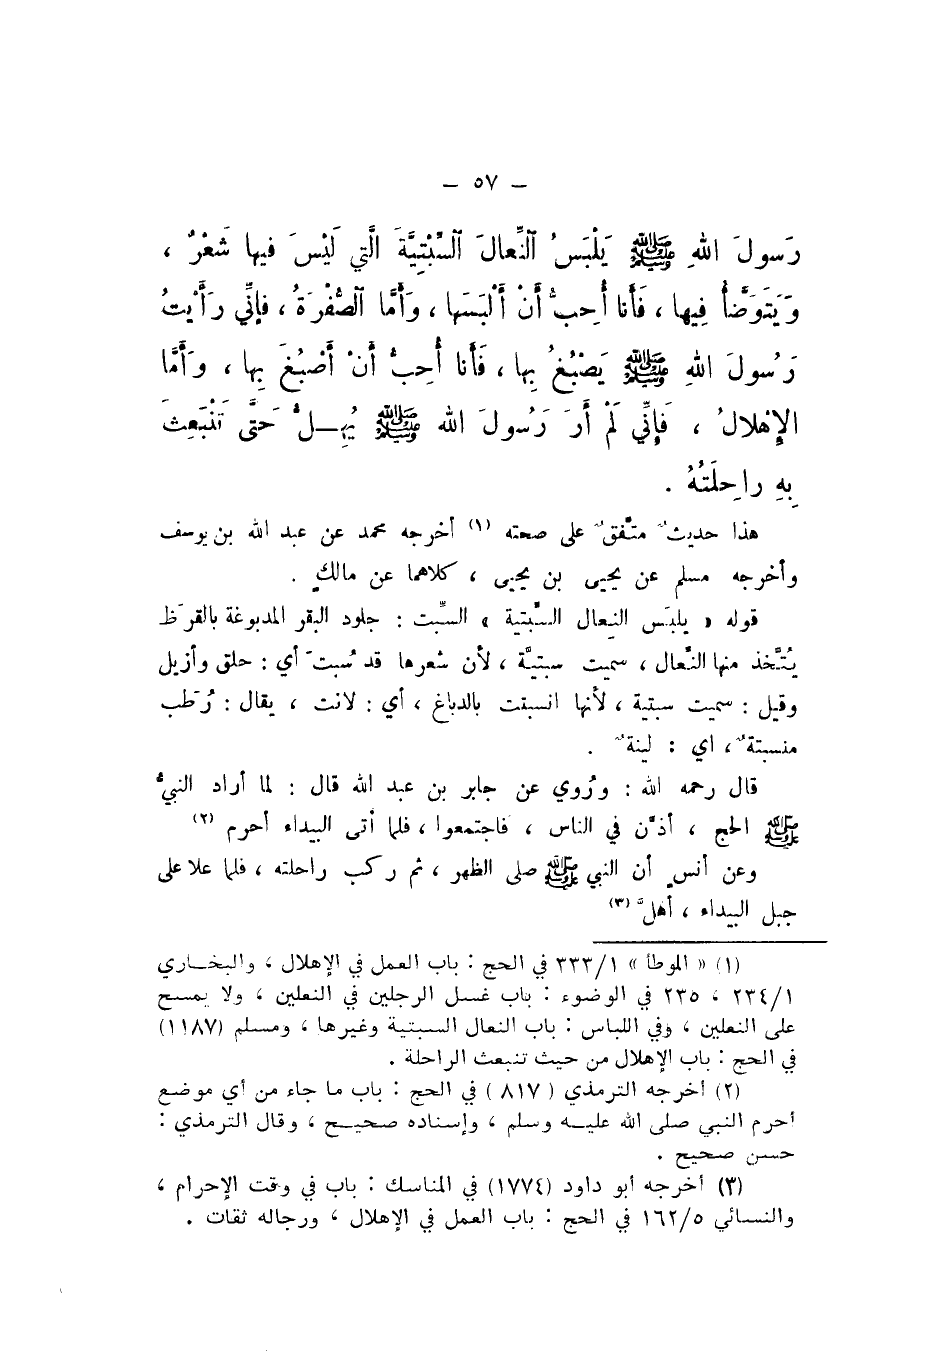 – ٥٧ –
رَسولَ اللهِ ﷺ يَلْبَسُ النِّعالَ السِّبْتِيَّةَ الَّتي لَيْسَ فيها شَعْرٌ ،
وَيَتَوَضَّأُ فِيها ، فَأَنا أُحِبُّ أَنْ أَلْبَسَها ، وَأَمَّا الصُّفْرَةُ ، فإِنِّي رَأَيْتُ
رَسُولَ اللهِ ﷺ يَصْبُغُ بِها ، فَأَنا أُحِبُّ أَنْ أَصْبُغَ بِها ، وَأَمَّا
الإِهْلالُ ، فَإِنِّي لَمْ أَرَ رَسُولَ الله ﷺ يُهِـلُّ حَتَّى تَنْبَعِثَ
بِهِ راحِلَتُهُ .
هذا حديثٌ متَّفقٌ على صحته (١) أخرجه محمد عن عبد الله بن يوسف
وأخرجه مسلم عن يحيى بن يحيى ، كلاهما عن مالكٍ .
قوله « يلبَس النعال السِّبتية » السِّبت : جلود البقر المدبوغة بالقرَظ
يُتَّخذ منها النَّعال ، سميت سبتيَّة ، لأن شعرها قد سُبتَ أي : حلق وأزيل
وقيل : سميت سبتية ، لأنها انسبتت بالدباغ ، أي : لانت ، يقال : رُطَب
منسبتةٌ ، اي : لينةٌ .
قال رحمه الله : ورُوي عن جابر بن عبد الله قال : لما أراد النبيُّ
ﷺ الحج ، أذَّن في الناس ، فاجتمعوا ، فلما أتى البيداء أحرم (٢)
وعن أنسٍ أن النبي ﷺ صلى الظهر ، ثم ركب راحلته ، فلما علا على
جبل البيداء ، أهلَّ (٣)
(١) « الموطأ » ٣٣٣/١ في الحج : باب العمل في الإهلال ، والبخـاري
٢٣٤/١ ، ٢٣٥ في الوضوء : باب غسل الرجلين في النعلين ، ولا يمسح
على النعلين ، وفي اللباس : باب النعال السبتية وغيرها ، ومسلم (١١٨٧)
في الحج : باب الإهلال من حيث تنبعث الراحلة .
(٢) أخرجه الترمذي ( ٨١٧ ) في الحج : باب ما جاء من أي موضع
أحرم النبي صلى الله عليـه وسلم ، وإسناده صحيـح ، وقال الترمذي :
حسن صحيح .
(٣) أخرجه أبو داود (١٧٧٤) في المناسك : باب في وقت الإحرام ،
والنسائي ١٦٢/٥ في الحج : باب العمل في الإهلال ، ورجاله ثقات .